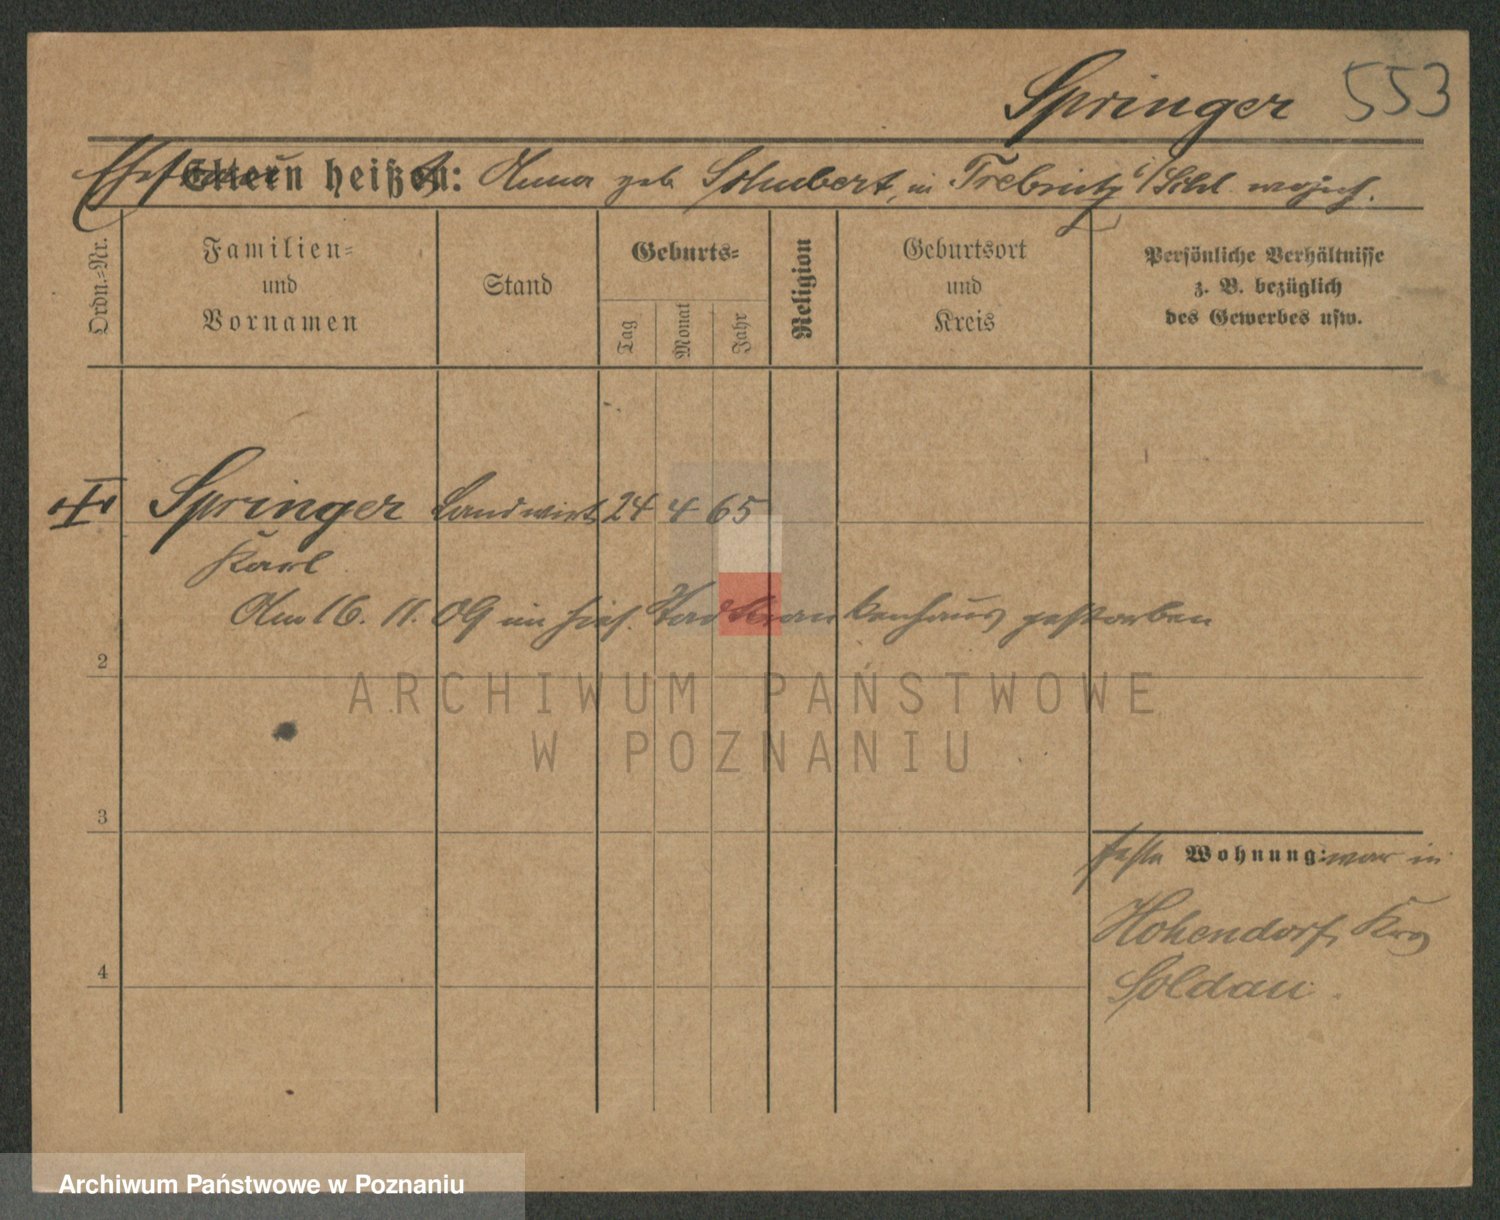 Springer 553
Ehefrau Eltern heißen: Anna geb Schubert, in Trebnitz i/Schl. wohnh.
Ordn.=Nr.
Familien=
und
Vornamen
Stand
Geburts=
Tag
Monat
Jahr
Religion
Geburtsort
und
Kreis
Persönliche Verhältnisse
z. B. bezüglich
des Gewerbes usw.
Springer Landwirt 24 4 65
Karl
Am 16. 11. 09 im hies. Stadtkrankenhaus gestorben
2
3
4
Wohnung: war in
Hohendorf, Krs
Soldau.
ARCHIWUM PAŃSTWOWE
W POZNANIU
Archiwum Państwowe w Poznaniu